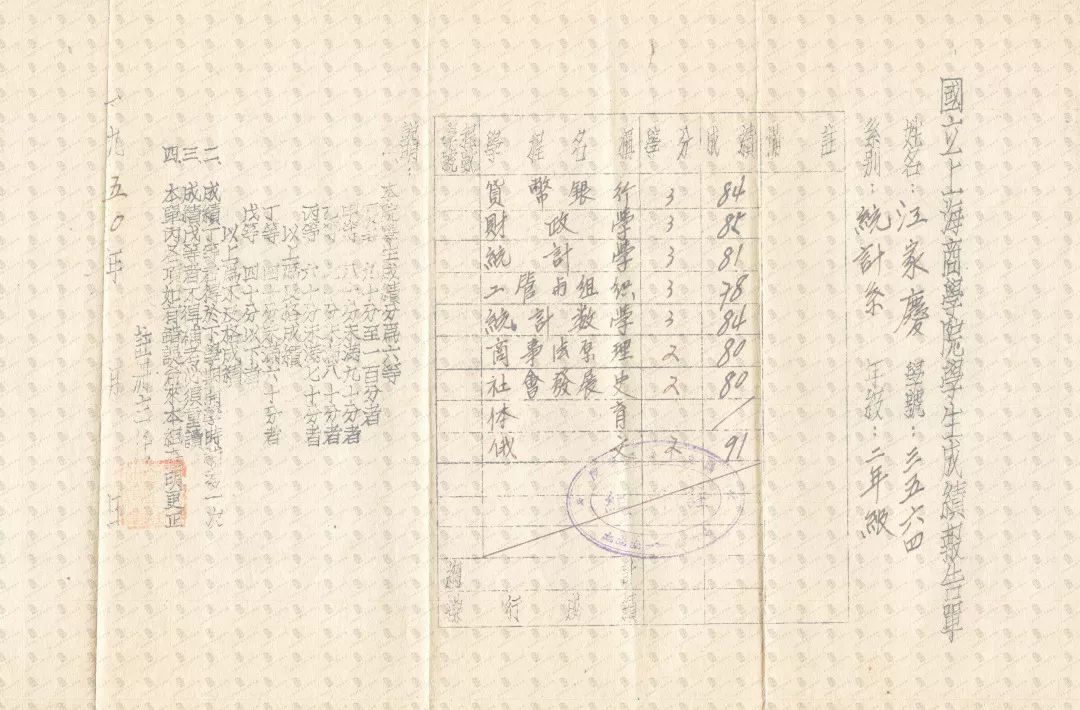 國立上海商學院學生成績報告單
姓名：江家慶 學號：三五六四
系別：統計系 年級：二年級
學程名稱 學分 成績 備註
貨幣銀行 3 84
財政學 3 85
統計學 3 81
工管与組織 3 78
統計数学 3 84
商事法原理 2 80
社會發展史 2 80
体育 /
俄文 2 91
操行成績
說明：
本院學生成績分為六等
九十分至一百分者
八十分未滿九十分者
丙等 六十分未滿七十分者
以上為及格成績
丁等 四十分未滿六十分者
戊等 四十分以下者
以上為不及格成績
二、
三、成績戊等者不得補考必須重讀
四、本單內各項如有錯誤名來本更正
一九五〇年 月 日